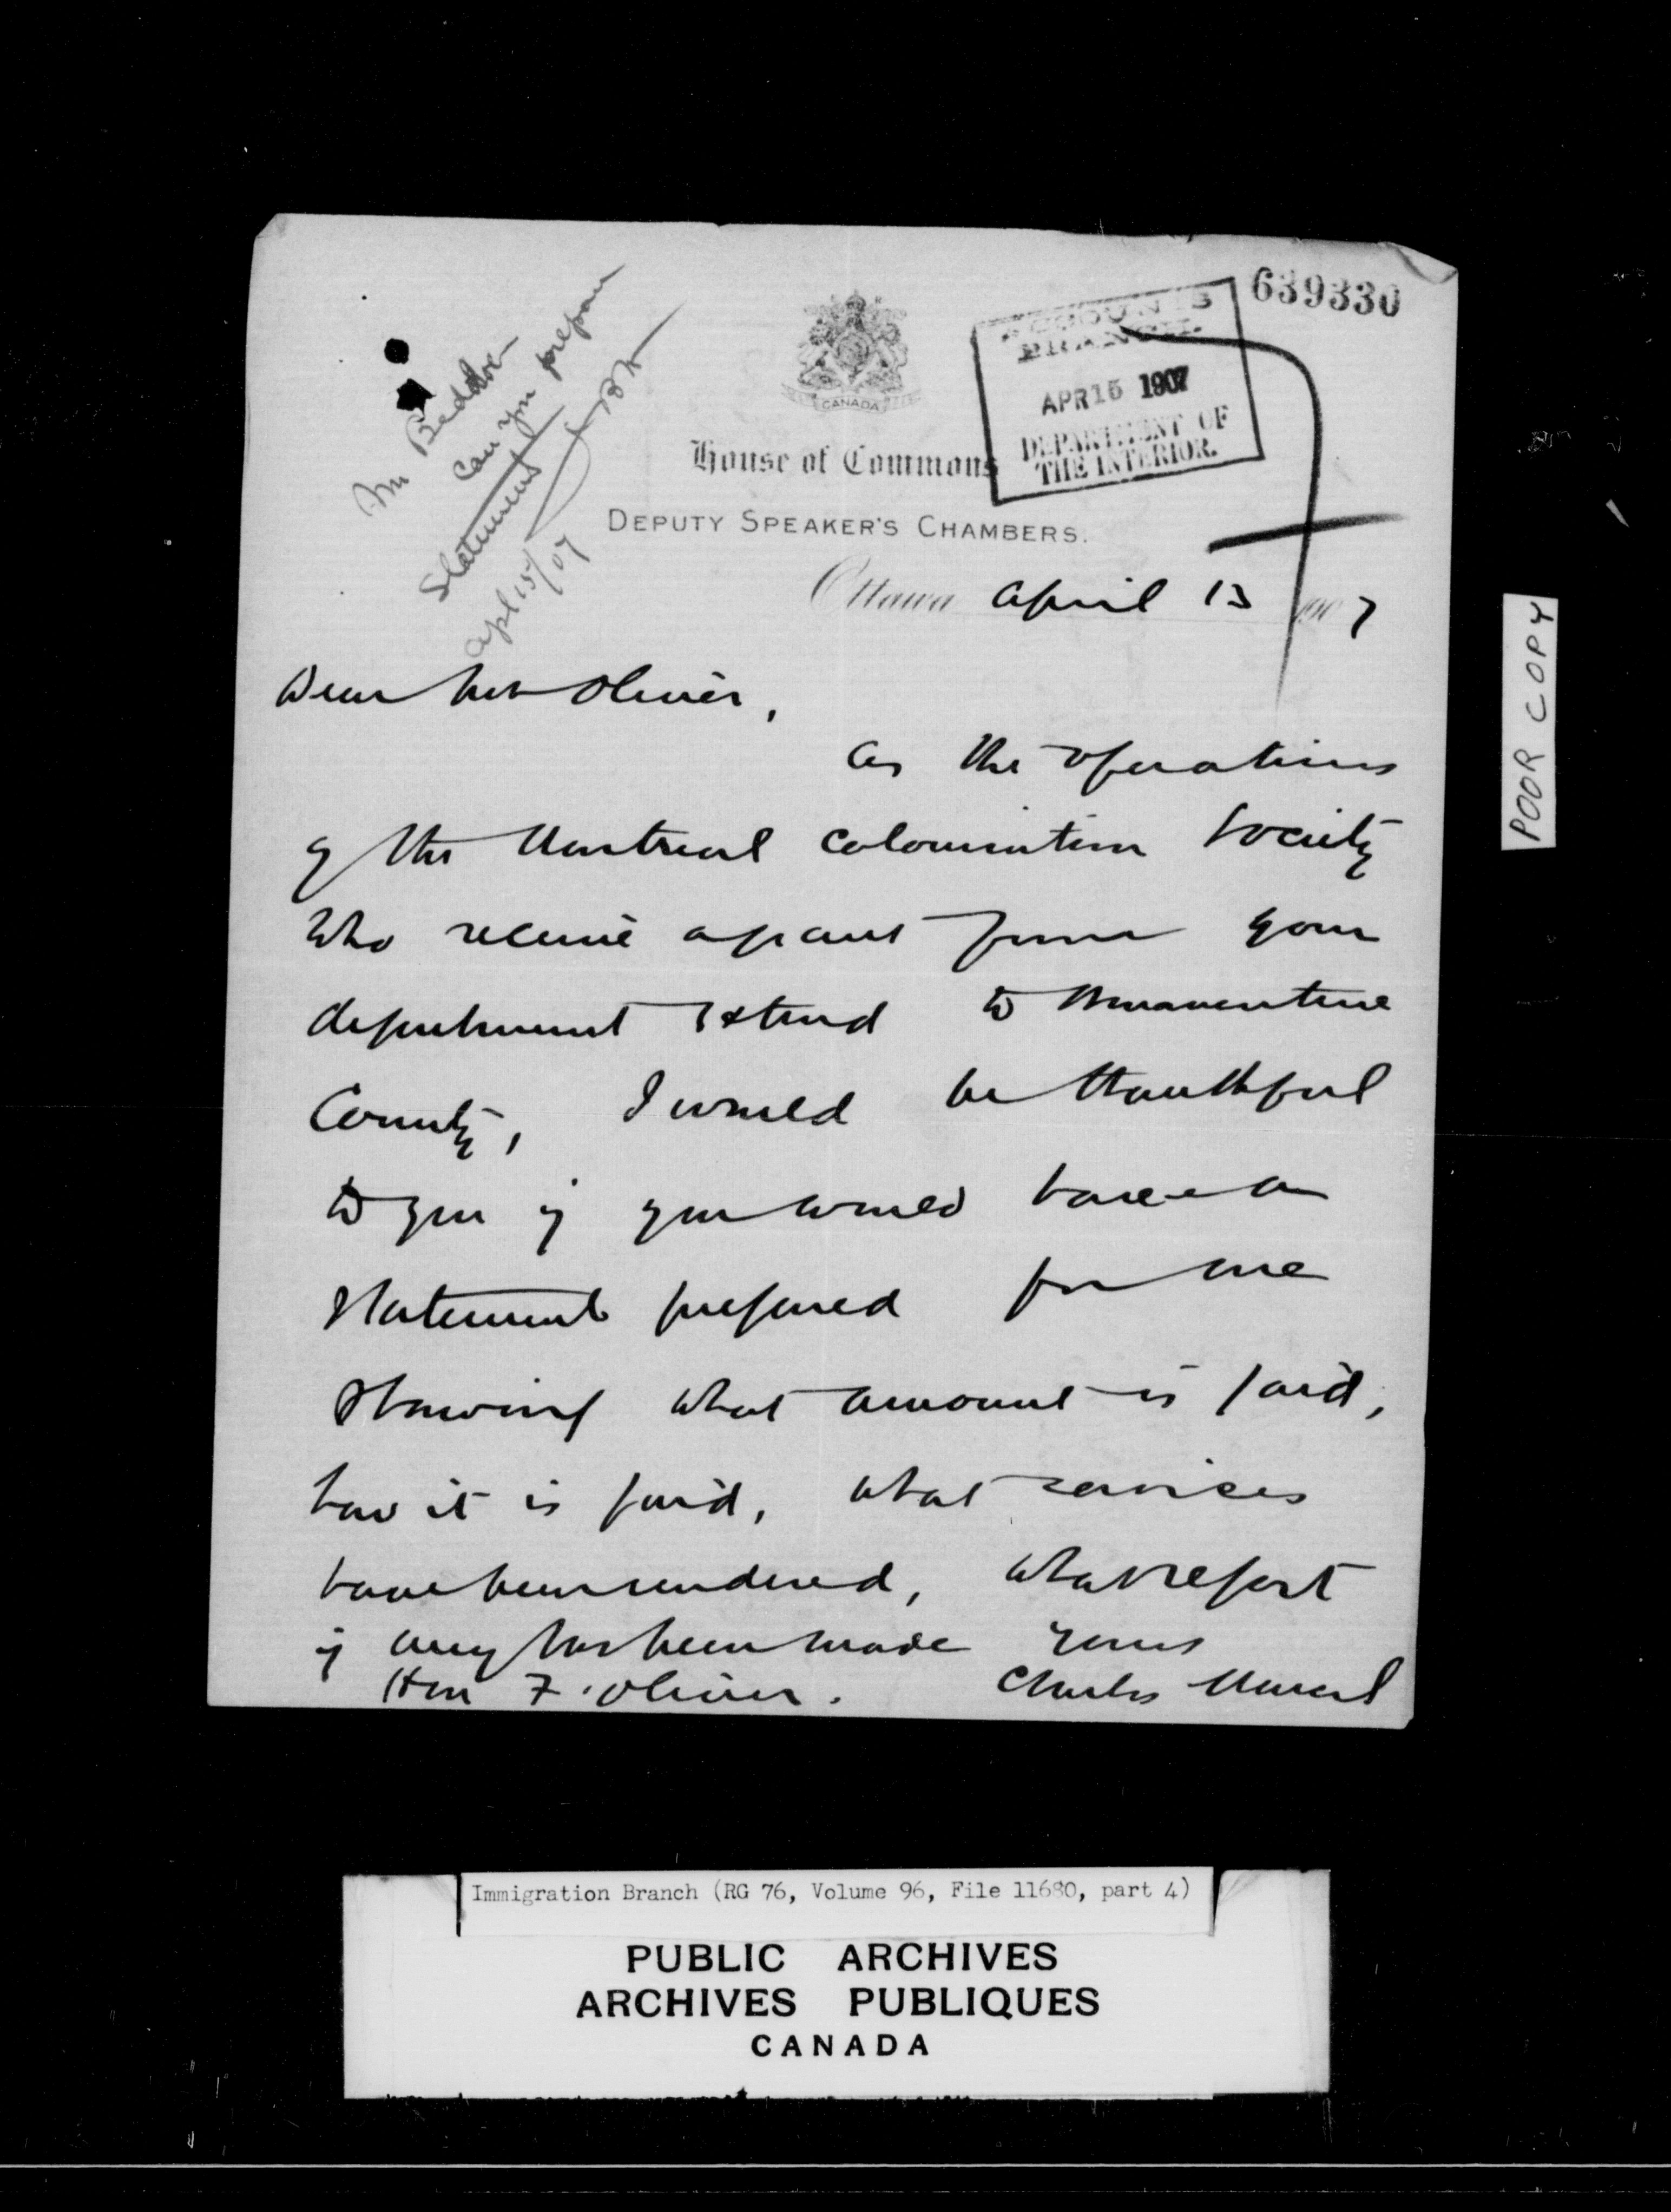 639330
ACCOUNTS
BRANCH.
APR 15 1907
DEPARTMENT OF
THE INTERIOR.
Mr Beddoe
Can you prepare
Statement
Apl 15/07
CANADA
House of Commons
DEPUTY SPEAKER'S CHAMBERS.
Ottawa April 13 1907
Dear Mr Oliver,
As the operations
of the Montreal Colonization Society
who receive a grant from your
department extend to Bonaventure
County, I would be thankful
to you if you would have a
statement prepared for me
showing what amount is paid,
how it is paid, what services
have been rendered, what report
if any has been made Yours
Hon F. Oliver. Charles Marcil
POOR COPY
Immigration Branch (RG 76, Volume 96, File 11680, part 4)
PUBLIC ARCHIVES
ARCHIVES PUBLIQUES
CANADA